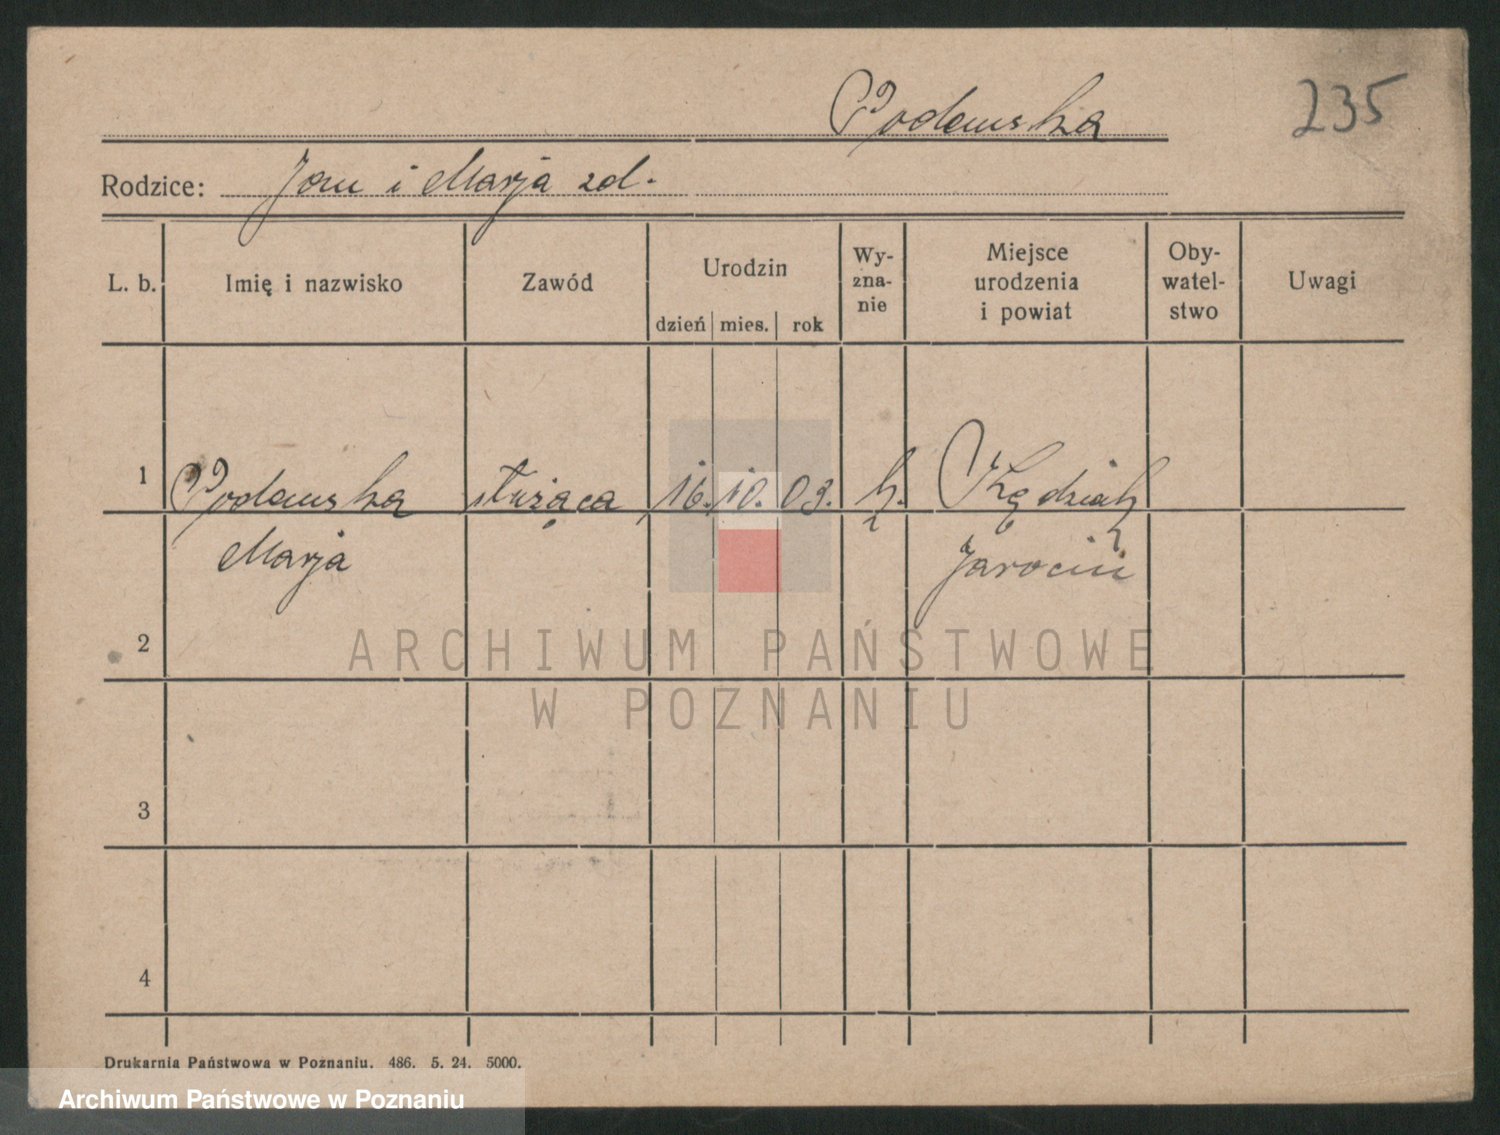 235
Podemska
Rodzice: Jan i Marja zd.
L. b. Imię i nazwisko Zawód Urodzin dzień mies. rok Wy-zna-nie Miejsce urodzenia i powiat Oby-watel-stwo Uwagi
1 Podemska służąca 16. 10. 03. k.
Marja Jarocin
2
ARCHIWUM PAŃSTWOWE
W POZNANIU
3
4
Drukarnia Państwowa w Poznaniu. 486. 5. 24. 5000.
Archiwum Państwowe w Poznaniu